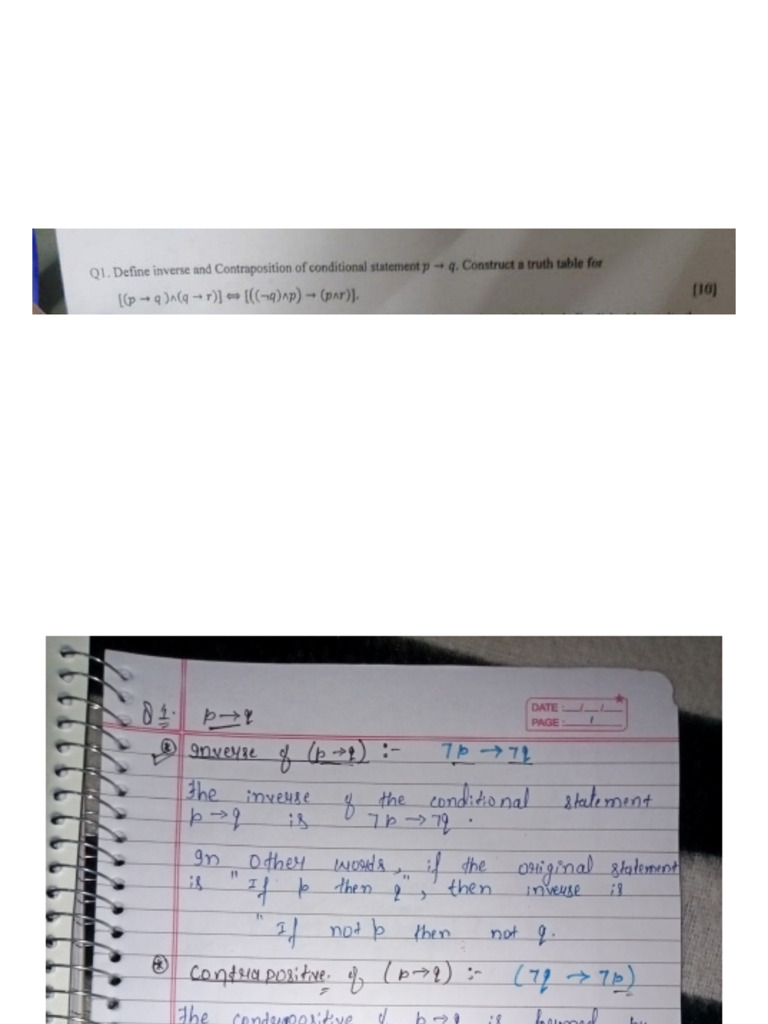 Q1. Define inverse and Contraposition of conditional statement p → q. Construct a truth table for
[(p → q )∧(q → r)] ⇔ [((¬q)∧p) → (p∧r)].
[10]
Q1. p→q
DATE :__/__/__
PAGE :____/____
Inverse of (p→q) :- ¬p → ¬q
The inverse of the conditional statement
p→q is ¬p→¬q.
In other words, if the original statement
is "If p then q", then inverse is
"If not p then not q.
Contrapositive of (p→q) :- (¬q → ¬p)
The contrapositive of p→q is formed by